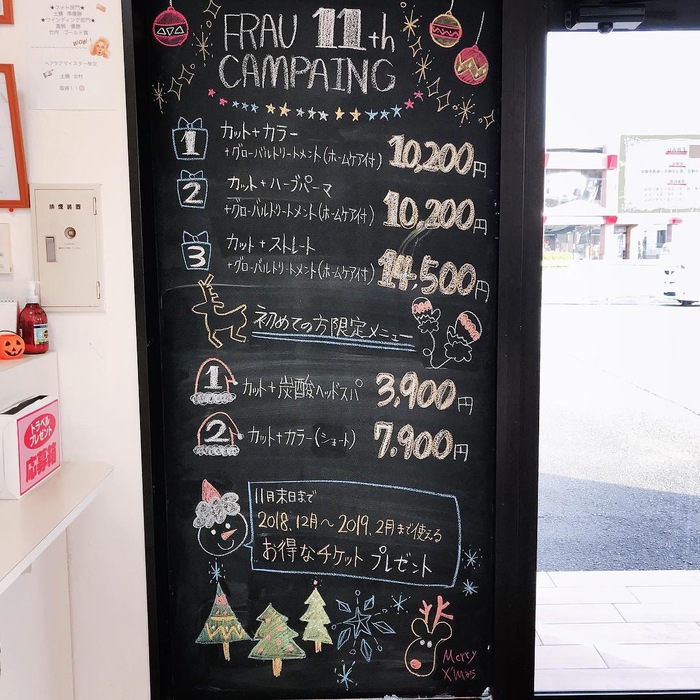 ★フォト部門★
★ワインディング部門★
竹内 ゴールド賞
WOW!
ヘアケアマイスター検定
土橋 北村
取得！！
排煙装置
トラベル
プレゼント
応募箱
FRAU 11th
CAMPAING
1 カット+カラー
+グローバルトリートメント(ホームケア付) 10,200円
2 カット+ハーブパーマ
+グローバルトリートメント(ホームケア付) 10,200円
3 カット+ストレート
+グローバルトリートメント(ホームケア付) 14,500円
初めての方限定メニュー
1 カット+炭酸ヘッドスパ 3,900円
2 カット+カラー(ショート) 7,900円
11月末日まで
2018.12月〜2019.2月まで使える
お得なチケット プレゼント
Merry
X'mas